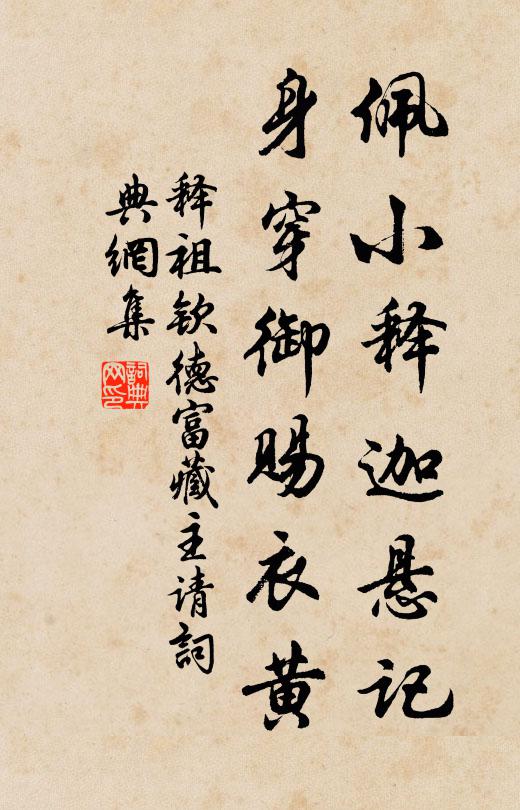 佩小释迦悬记
身穿御赐衣黄
释祖钦德富藏主请詞
典網集
詞典
网印